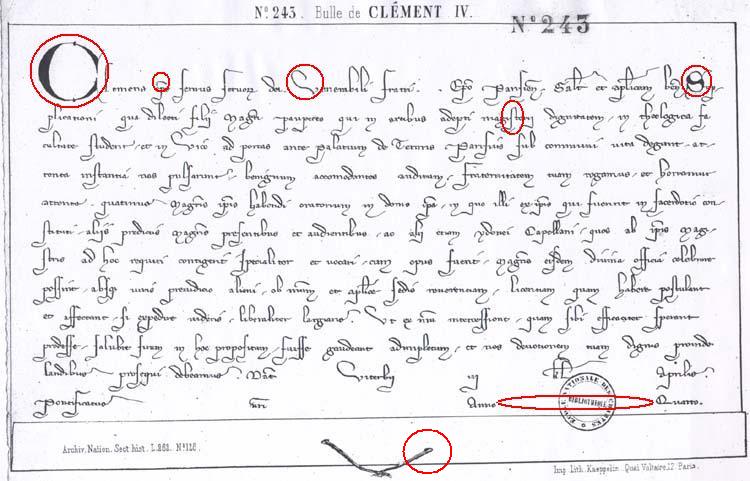 Nº 243. Bulle de CLÉMENT IV.
Nº 243
Clemens eps servus servor dei Venerabili fratri Epo Parisien. Salt et aplicam ben. Sup
plicationi qui dilecti filij Magri pauperes qui in artibus adepti magisterij dignitatem, in theologica fa
cultate student, et in Vico ad portas ante palatium de Termis Parisius sub communi vita degunt, at
tenta instantia nos pulsarunt, benignum accomodantes auditum, fraternitatem tuam rogamus, et hortamur
attente, quatinus Magris ipis habendi oratorium in domo ipa, in quo illi ex ipis qui fuerint in sacerdotio con
stituti, alijs predictis Magris presentibus et audientibus, ac alij etiam ydonei Capellani, quos ab ipis Magi
stris ad hoc requiri contigerit specialiter et vocari, cum opus fuerit, Magris eisdem divina officia celebrare
possint, absq iuris preiudicio alieni, ob nram et aplice Sedis reverentiam, licentiam quam habere postulant
et affectant, si expedire videris, liberaliter largiaris. Ut ex nra intercessione, quam sibi efficaciter sperant
prodesse, salubre suum in hoc propositum, fuisse gaudeant adimpletum, et nos devotionem tuam dignis proinde
laudibus prosequi debeamus. Dat. Viterbij iij kl. Aprilis.
Pontificatus nri Anno Quarto.
ECOLE NATIONALE DES CHARTES
BIBLIOTHEQUE
Archiv. Nation. Sect hist. L.263. Nº 126.
Imp. Lith. Kaeppelin. Quai Voltaire, 17. Paris.